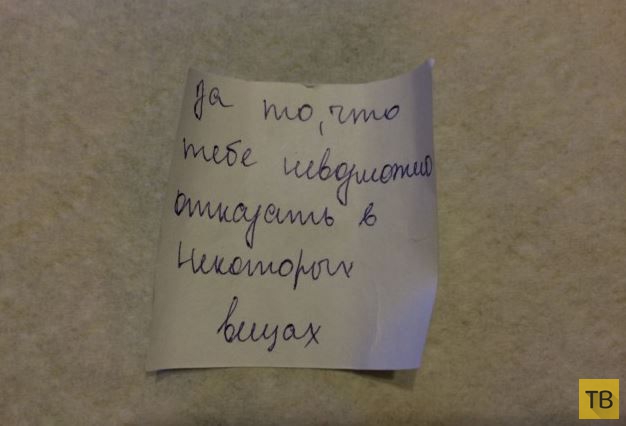 За то, что
тебе невозможно
отказать в
некоторых
вещах
ТВ